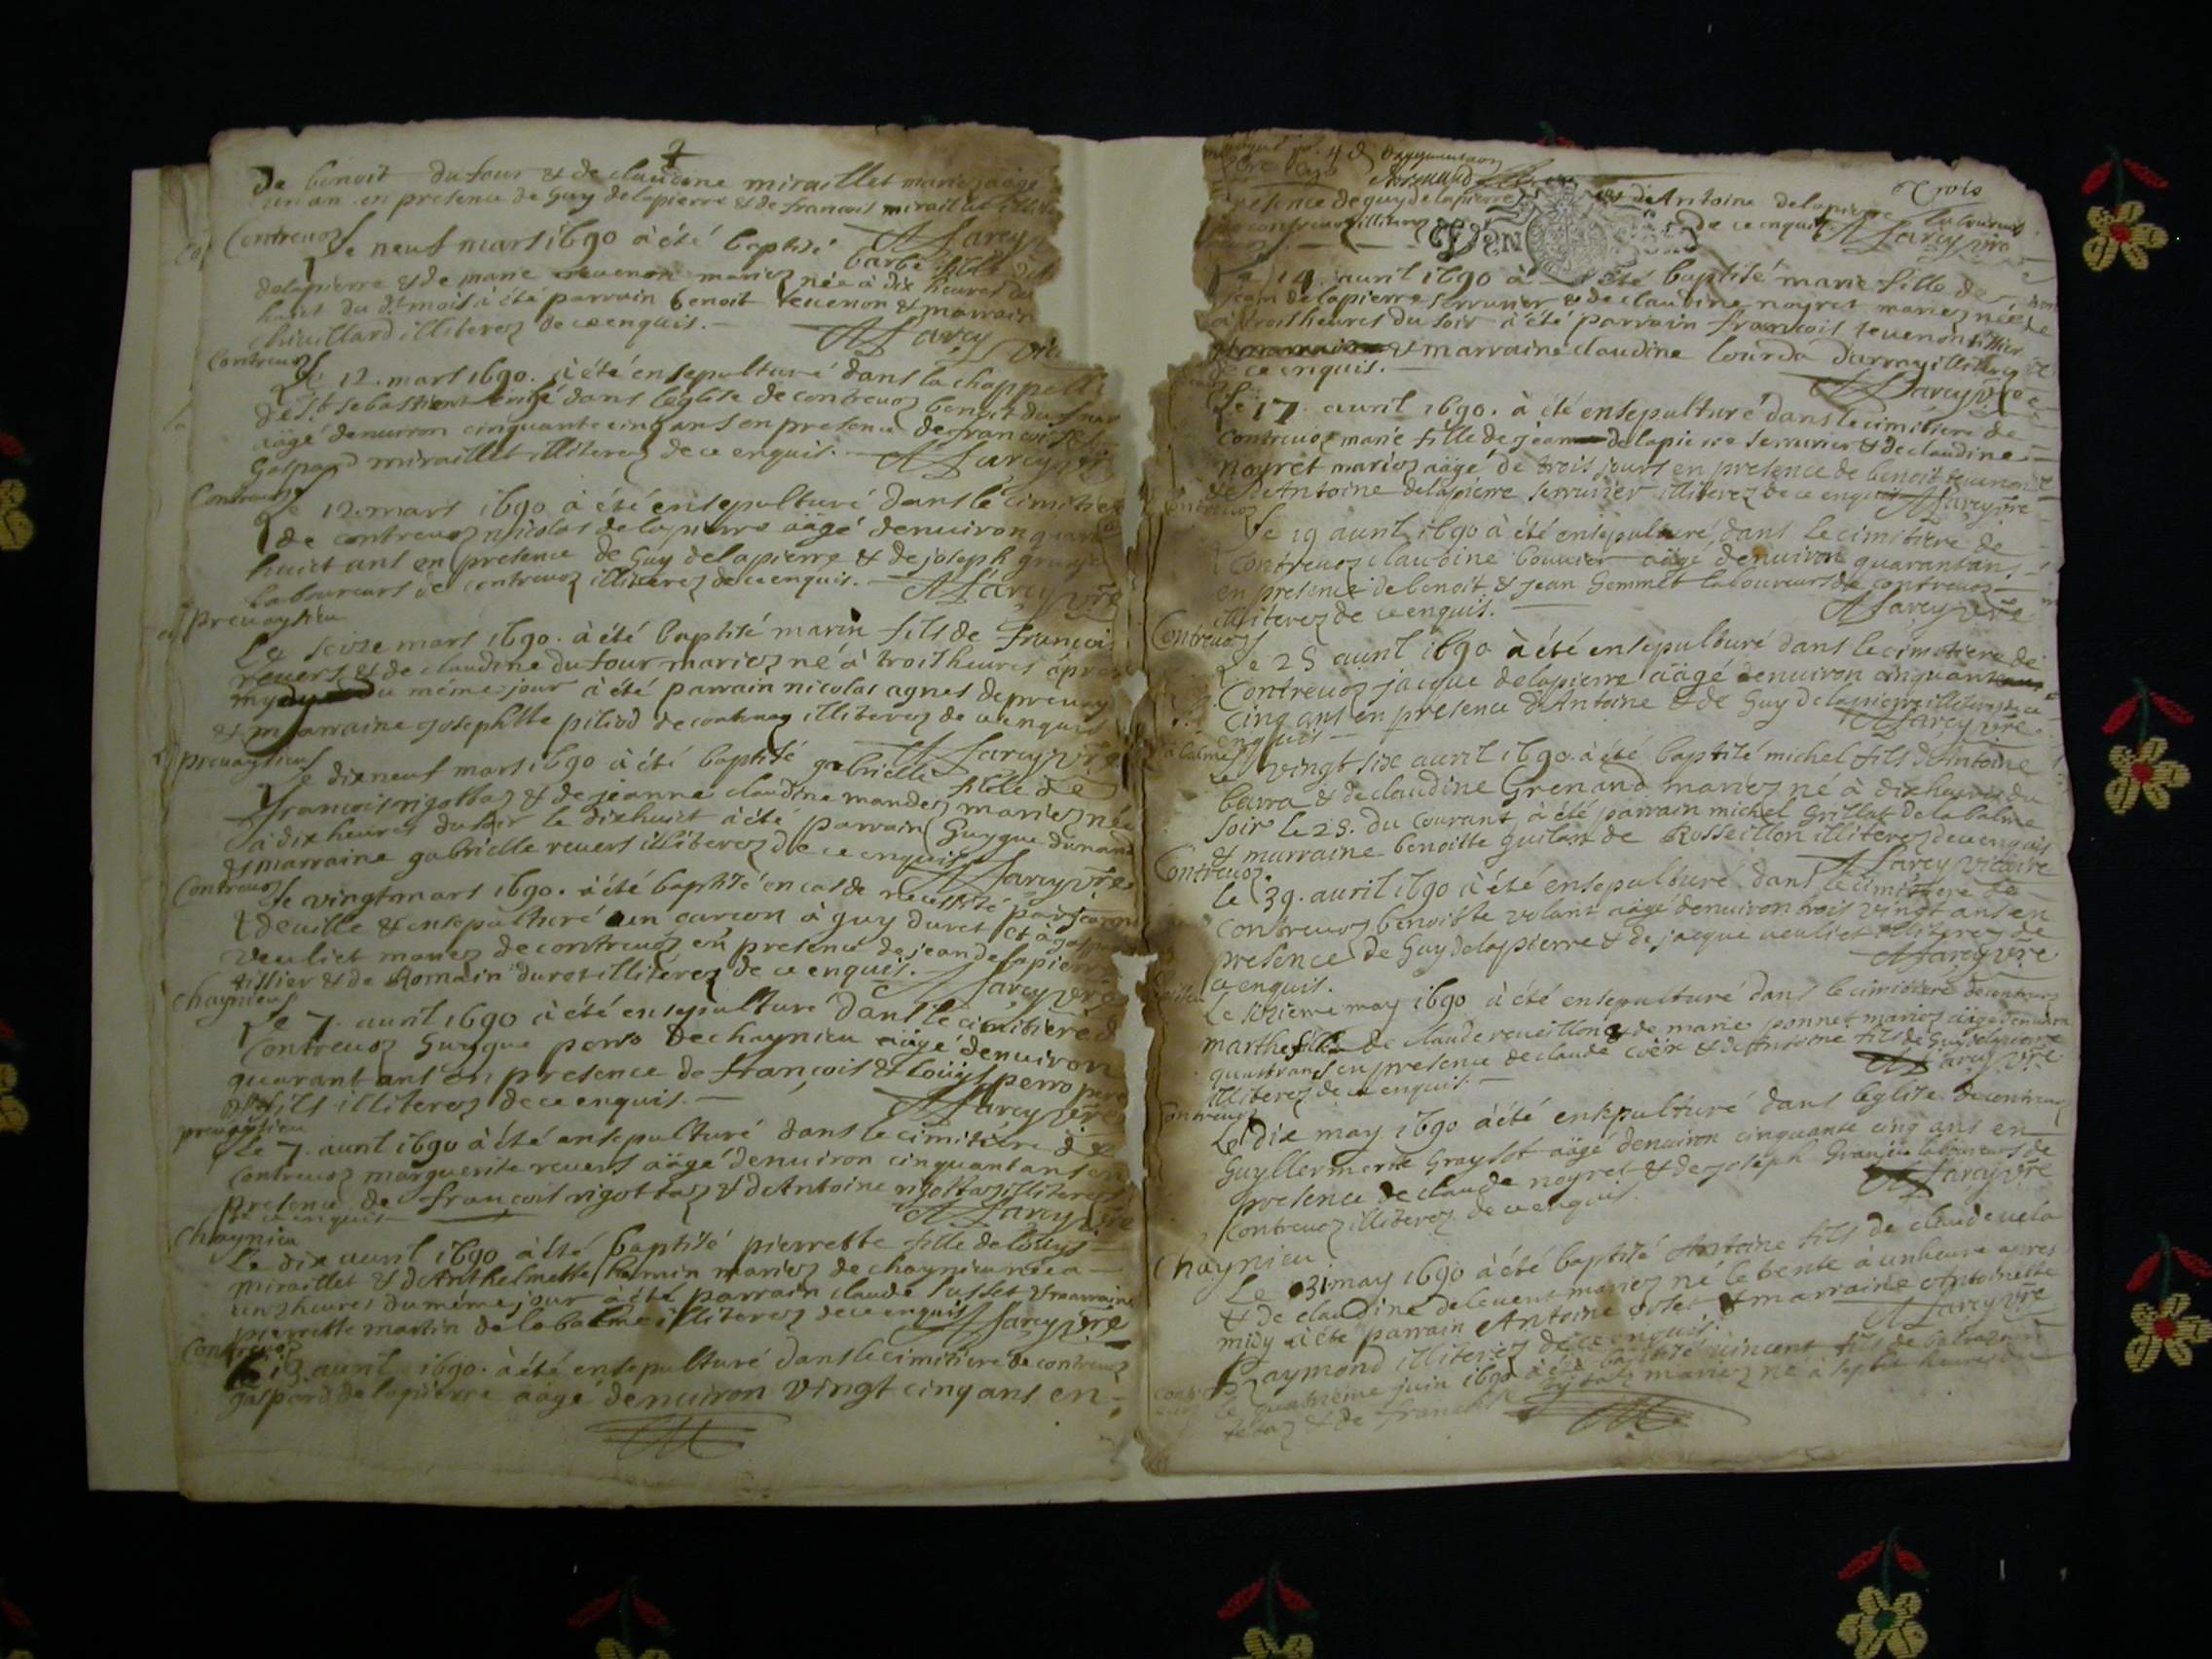 2
De benoit dufour & de claudine miraillet mariez aâgé
un an en presence de Guy delapierre & de francois mirail
Contreuoz
Le neuf mars 1690 à été baptisé barbe fille
delapierre & de marie teuenon mariez née à dix heures du
huict du dt mois à été parrain benoit teuenon & marrain
chiuillard illiterez de ce enquis. A Larcy
Contreuoz
Le 12. mars 1690. à été ensepulturé dans la chappelle
de st sebastient erigé dans leglise de contreuoz benoit dufour
aâgé denuiron cinquante cinq ans en presence de francois &
Gaspard miraillet illiterez de ce enquis. A Larcy
Contreuoz
Le 12. mars 1690 à été ensepulturé dans le cimitier
de contreuoz nicolas delapierre aâgé denuiron quara
huict ans en presence de Guy delapierre & de joseph granje
laboureurs de contreuoz illiterez de ce enquis. A Larcy vre
preueysieu
Le seize mars 1690. à été baptisé marin fils de Francois
reuers & de claudine dufour mariez né à trois heures apres
mydy du méme jour à été parrain nicolas agnes de preuey
& marraine josephtte piliod de contreuoz illiterez de ce enquis
A Larcy vre
preueysieu
Le dixneuf mars 1690 à été baptisé gabrielle fille de
francois rigottaz & de jeanne claudine mandez mariez née
à dix heures du soir le dixhuict à été parrain Guygue dunand
& marraine gabrielle reuers illiterez de ce enquis A Larcy vre
Contreuoz
Le vingt mars 1690. à été baptisé en cas de necessité par
deuille & ensepulturé un garcon à guy duret et à
veuliet mariez de contreuoz en presence de jean delapierre
tissier & de Romain duret illiterez de ce enquis. A Larcy vre
Chaynieu
Le 7. auril 1690 à été ensepulturé dans le cimitiere de
Contreuoz Guygue perro de chaynieu aâgé denuiron
quarant ans en presence de francois & Loüys perro pere
& fils illiterez de ce enquis. A Larcy vre
preueysieu
Le 7. auril 1690 à été ensepulturé dans le cimitiere de
Contreuoz marguerite reuers aâgé denuiron cinquant ans en
presence de francois rigottaz & dAntoine rigottaz illiterez
de ce enquis A Larcy vre
Chaynieu
Le dix auril 1690 à été baptisé pierrette fille de Loüys
miraillet & dAnthelmette mariez de chaynieu née a
unz heures du méme jour à été parrain claude susset & marraine
pierrette martin de la balme illiterez de ce enquis A Larcy vre
Contreuoz
Le 13. auril 1690. à été ensepulturé dans le cimitiere de contreuoz
gaspard delapierre aâgé denuiron vingt cinq ans en
Trois
presence de guy delapierre & dAntoine delapierre laboureurs
de contreuoz illiterez de ce enquis A Larcy vre
Le 14. auril 1690 à été baptisé marie fille de
jean delapierre serrurier & de claudine noyret mariez née
à trois heures du soir à été parrain francois teuenon tissier
& marraine claudine Lourda darray illiterez
de ce enquis. A Larcy vre
Le 17. auril 1690. à été ensepulturé dans le cimitiere de
Contreuoz marie fille de jean delapierre serrurier & de claudine
noyret mariez aâgé de trois jours en presence de benoit teuenon
& de Antoine delapierre serrurier illiterez de ce enquis A Larcy vre
Contreuoz
Le 19 auril 1690 à été ensepulturé dans le cimitiere de
Contreuoz claudine bouuier aâgé denuiron quarant ans
en presence de benoit & jean Gemmet laboureurs de contreuoz
illiterez de ce enquis. A Larcy vre
Contreuoz
Le 25 auril 1690 à été ensepulturé dans le cimitiere de
Contreuoz jacque delapierre aâgé denuiron cinquante
cinq ans en presence dAntoine & de Guy delapierre illiterez de ce
enquis A Larcy vre
la balme
Le vingt six auril 1690. à été baptisé michel fils dAntoine
barra & de claudine Grenand mariez né à dix heures du
soir le 25. du courant à été parrain michel Grillat de la balme
& marraine benoitte guilan de Rosseillon illiterez de ce enquis
A Larcy vicaire
Contreuoz
Le 30. auril 1690 à été ensepulturé dans le cimitiere de
contreuoz benoitte volant aâgé denuiron trois vingt ans en
presence de Guy delapierre & de jacque veuliet illiterez de
ce enquis. A Larcy vre
may 1690 à été ensepulturé dans le cimitiere de contreuoz
marthe fille de claude reueillon & de marie ponnet mariez aâgé denuiron
quatr ans en presence de claude & dAntoine fils de Guy delapierre
illiterez de ce enquis. A Larcy vre
Contreuoz
Le dix may 1690 à été ensepulturé dans leglise de contreuoz
Guyllermette Grayset aâgé denuiron cinquante cinq ans en
presence de claude noyret & de joseph Granjeu laboureurs de
Contreuoz illiterez de ce enquis. A Larcy vre
Chaynieu
Le 31 may 1690 à été baptisé Antoine fils de claude uela
& de claudine deleuent mariez né le trente à un heure apres
midy à été parrain Antoine & marraine Antoinette
Raymond illiterez de ce enquis. A Larcy vre
Le quatrieme juin 1690 à été baptisé uincent fils de
& de mariez né à sept heures du